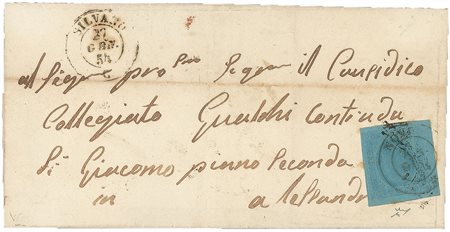 SILVANO
27
GEN.
54
al Sigr pro sig. il Causidico
Collegiato Gualchi Contrada
Di Giacomo piano Secondo
in alessand